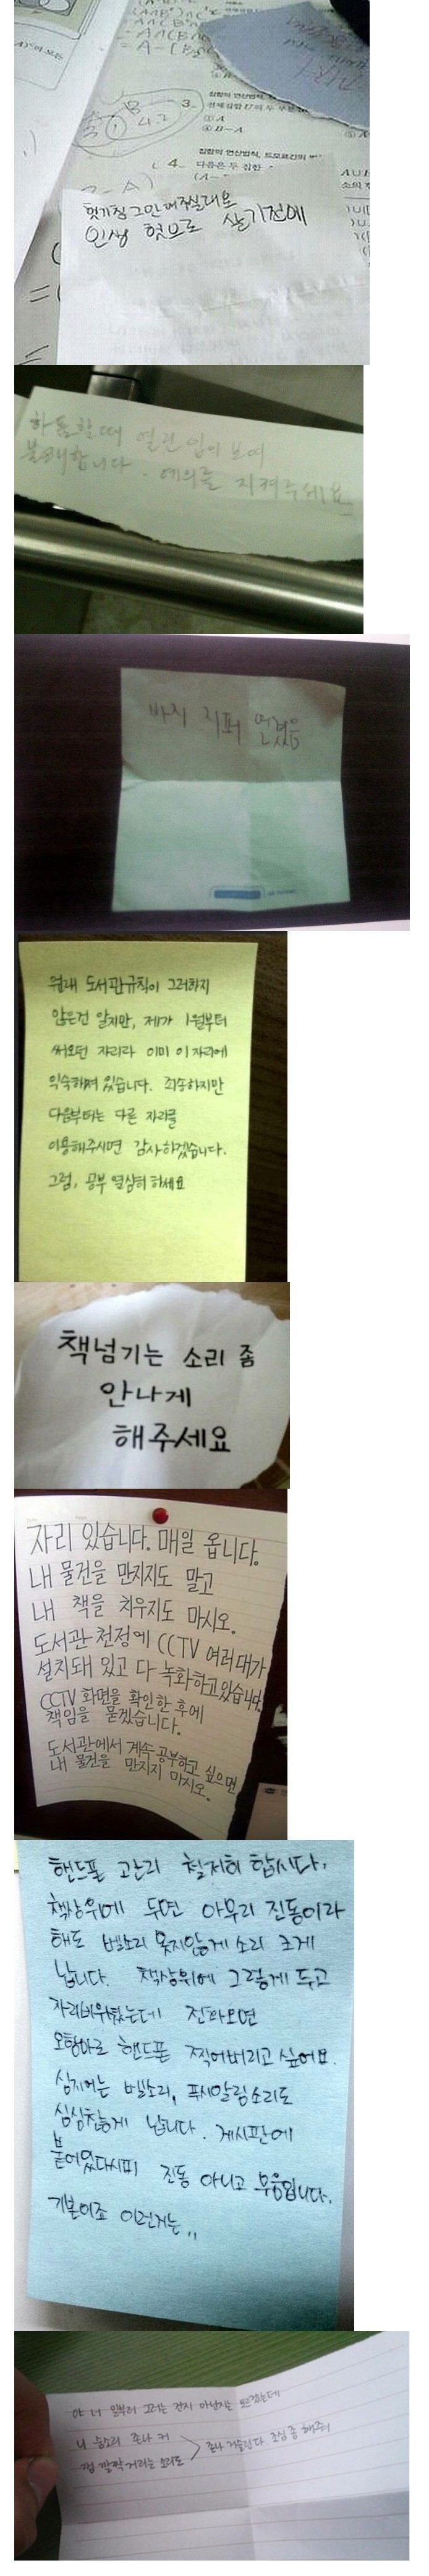 3.
집합의 연산법칙, 드모르간의
4. 다음은 두 집합
헛기침 그만해주실래요
인생 헛으로 살기전에
하품할때 열린 입이 보여
불쾌합니다. 예의를 지켜주세요
바지 지퍼 열렸음
원래 도서관규칙이 그러하지
않은건 알지만, 제가 1월부터
써오던 자리라 이미 이 자리에
익숙해져 있습니다. 죄송하지만
다음부터는 다른 자리를
이용해주시면 감사하겠습니다.
그럼, 공부 열심히 하세요
책넘기는 소리 좀
안나게
해주세요
자리 있습니다. 매일 옵니다.
내 물건을 만지지도 말고
내 책을 치우지도 마시오.
도서관 천정에 CCTV 여러대가
설치돼 있고 다 녹화하고있습니다.
CCTV 화면을 확인한 후에
책임을 묻겠습니다.
도서관에서 계속 공부하고 싶으면
내 물건을 만지지 마시오.
핸드폰 관리 철저히 합시다.
책상위에 두면 아무리 진동이라
해도 벨소리 못지않게 소리 크게
납니다. 책상위에 그렇게 두고
자리비워놨는데 전화오면
오함마로 핸드폰 찍어버리고 싶어요.
심지어는 벨소리, 푸시알림소리도
심심찮게 납니다. 게시판에
붙어있다시피 진동 아니고 무음입니다.
기본이죠 이런거는,,
야 너 일부러 그러는 건지 아닌지는 모르겠는데
니 숨소리 존나 커
껌 짤짝거리는 소리도 존나 거슬린다 조심 좀 해줘